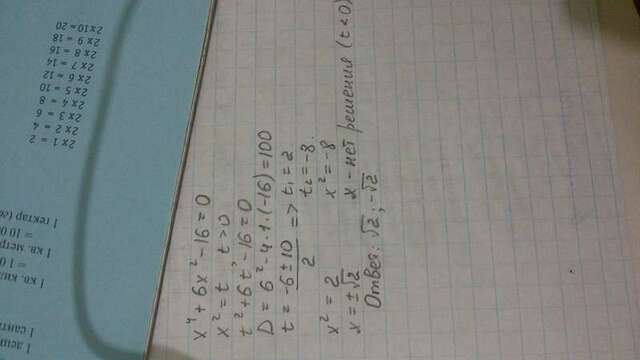 1 кв. кил
= 10
1 кв. метр
= 10 0
1 гектар
2 x 1 = 2
2 x 2 = 4
2 x 3 = 6
2 x 4 = 8
2 x 5 = 10
2 x 6 = 12
2 x 7 = 14
2 x 8 = 16
2 x 9 = 18
2 x 10 = 20
x⁴ + 6x² - 16 = 0
x² = t, t > 0
t² + 6t - 16 = 0
D = 6² - 4·1·(-16) = 100
t = (-6 ± 10)/2 => t₁ = 2
t₂ = -8.
x² = 2 x² = -8
x = ±√2 x - нет решения (t < 0)
Ответ: √2; -√2